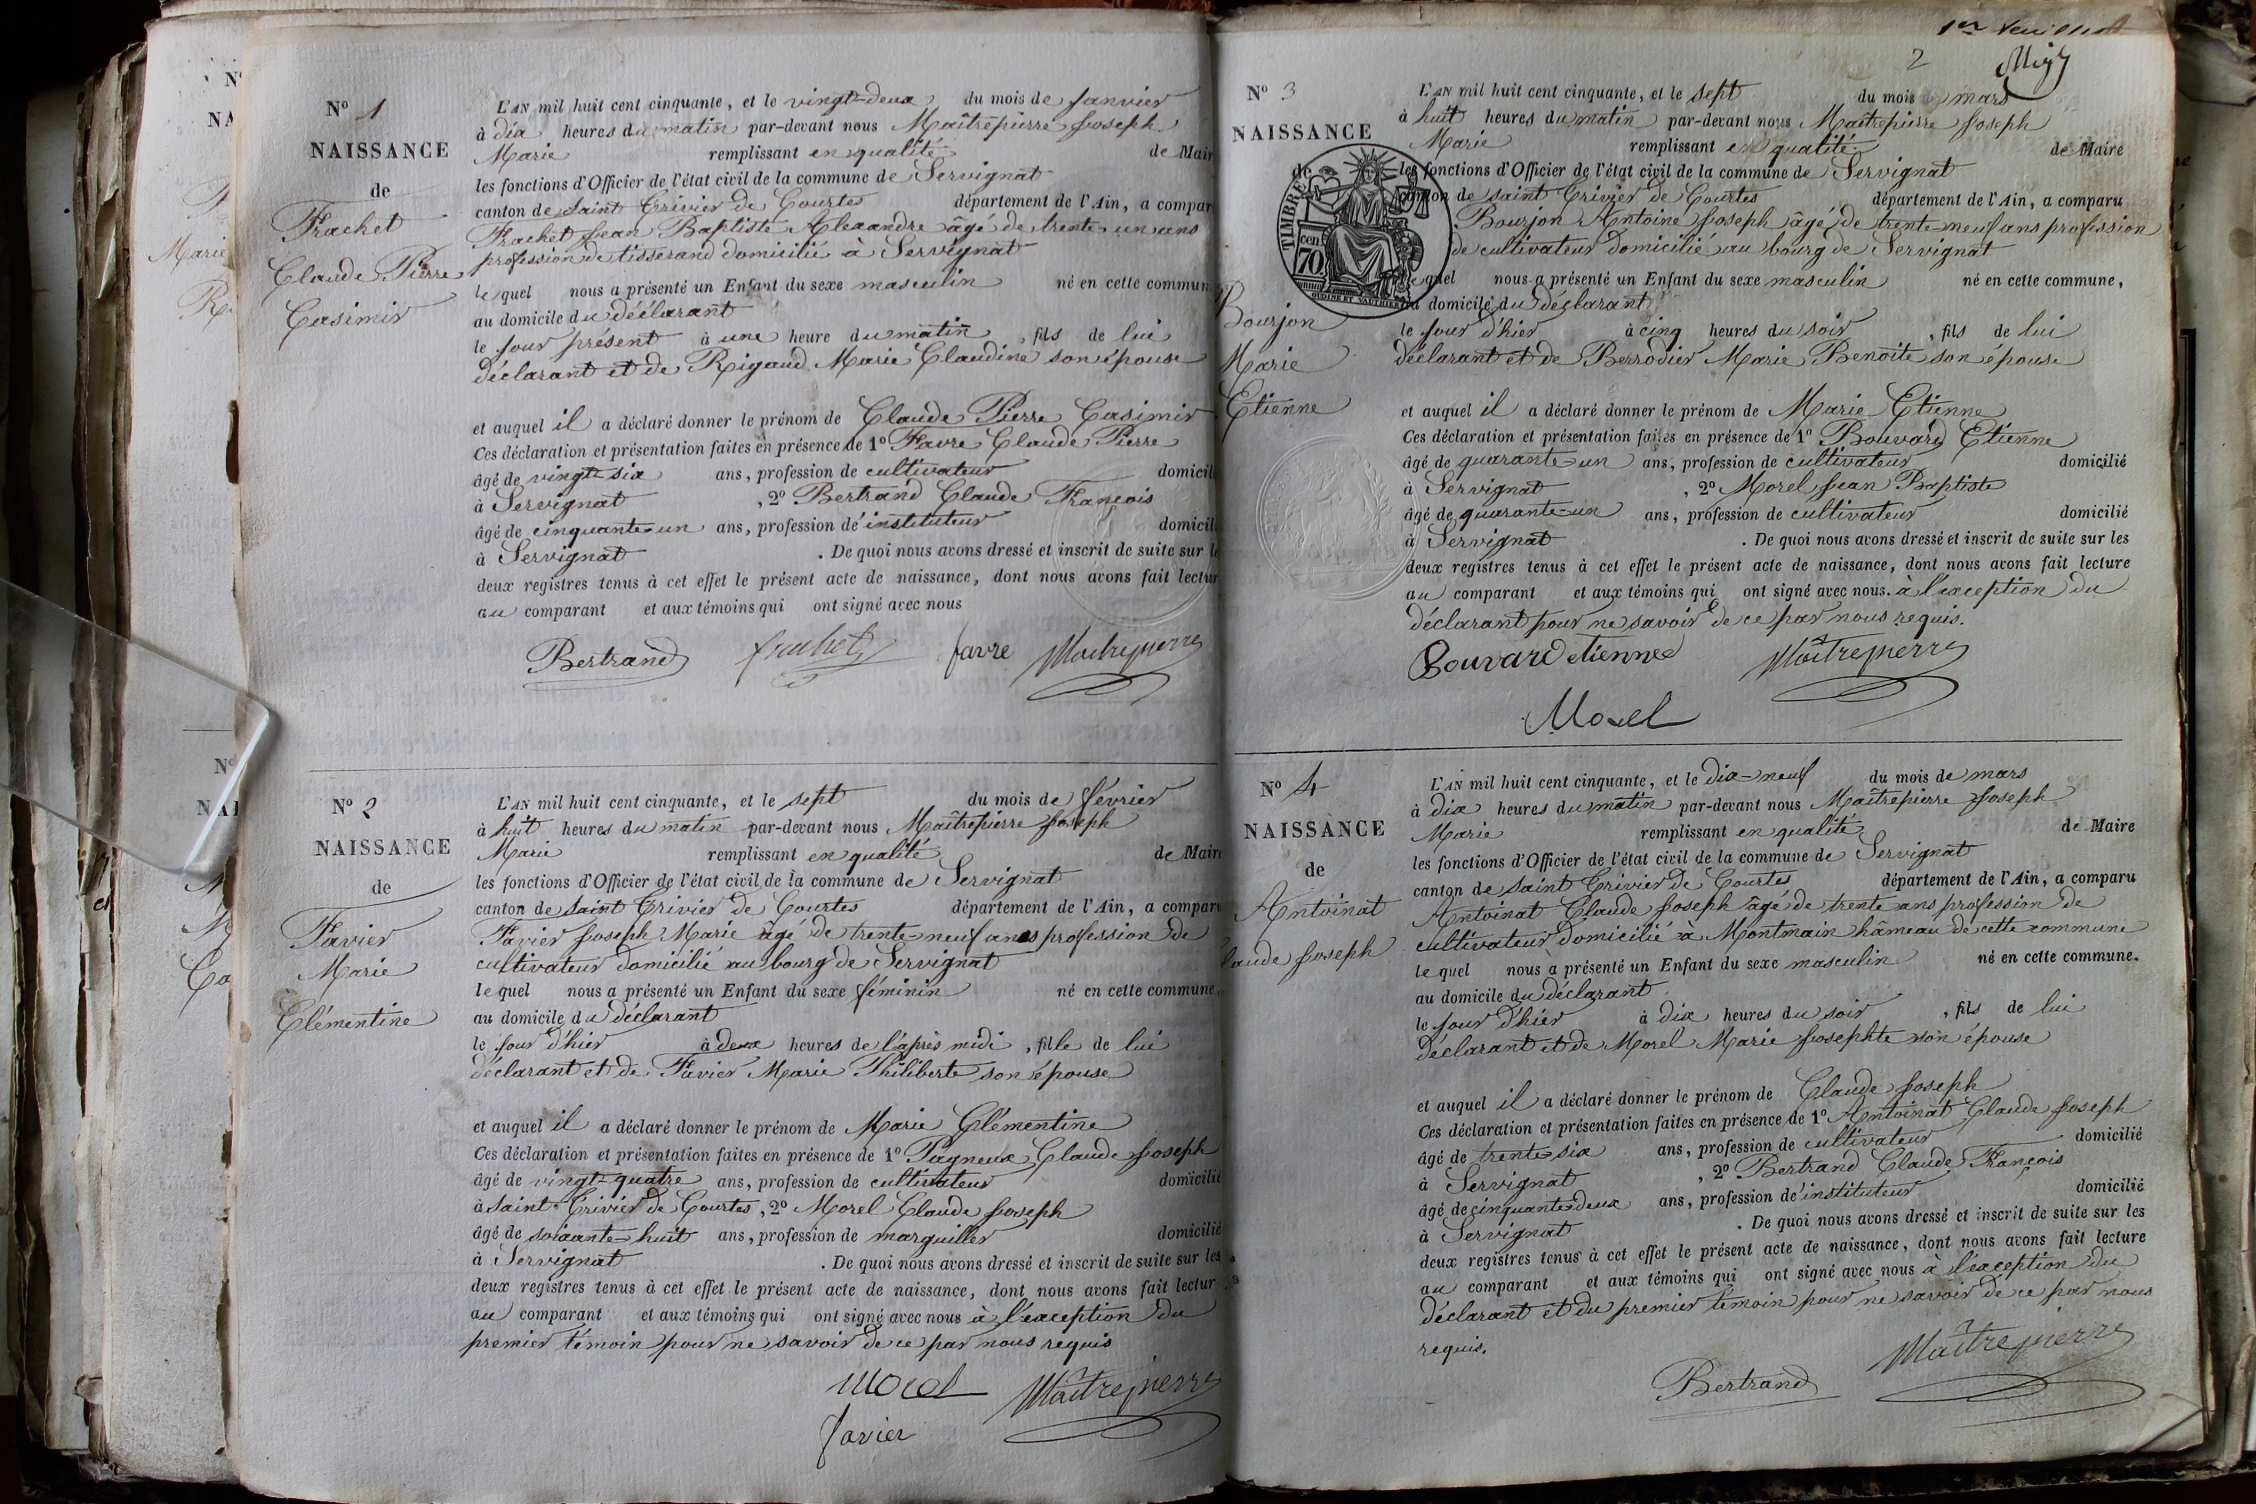 Nº 1
NAISSANCE
de
Frachet
Claude Pierre
Casimir
L'AN mil huit cent cinquante, et le vingt-deux du mois de Janvier
à dix heures du matin par-devant nous Maîtrepierre Joseph
Marie remplissant en qualité de Mair
les fonctions d'Officier de l'état civil de la commune de Servignat
canton de Saint Trivier de Courtes département de l'Ain, a compar
Frachet Jean Baptiste Alexandre âgé de trente un ans
profession de tisserand domicilié à Servignat
lequel nous a présenté un Enfant du sexe masculin né en cette commun
au domicile du déclarant
le jour présent à une heure du matin, fils de lui
déclarant et de Rigaud Marie Claudine son épouse
et auquel il a déclaré donner le prénom de Claude Pierre Casimir
Ces déclaration et présentation faites en présence de 1º Favre Claude Pierre
âgé de vingt-six ans, profession de cultivateur domicil
à Servignat, 2º Bertrand Claude François
âgé de cinquante-un ans, profession d'instituteur domicil
à Servignat. De quoi nous avons dressé et inscrit de suite sur l
deux registres tenus à cet effet le présent acte de naissance, dont nous avons fait lectur
au comparant et aux témoins qui ont signé avec nous
Bertrand frachet favre Maitrepierre
Nº 2
NAISSANCE
de
Favier
Marie
Clémentine
L'AN mil huit cent cinquante, et le sept du mois de février
à huit heures du matin par-devant nous Maîtrepierre Joseph
Marie remplissant en qualité de Mair
les fonctions d'Officier de l'état civil de la commune de Servignat
canton de Saint Trivier de Courtes département de l'Ain, a compar
Favier Joseph Marie âgé de trente neuf ans profession de
cultivateur domicilié au bourg de Servignat
lequel nous a présenté un Enfant du sexe féminin né en cette commune
au domicile du déclarant
le jour d'hier à deux heures de l'après midi, fille de lui
déclarant et de Favier Marie Philiberte son épouse
et auquel il a déclaré donner le prénom de Marie Clémentine
Ces déclaration et présentation faites en présence de 1º Pagneux Claude Joseph
âgé de vingt-quatre ans, profession de cultivateur domicilié
à Saint Trivier de Courtes, 2º Morel Claude Joseph
âgé de soixante-huit ans, profession de marguiller domicilié
à Servignat. De quoi nous avons dressé et inscrit de suite sur les
deux registres tenus à cet effet le présent acte de naissance, dont nous avons fait lectur
au comparant et aux témoins qui ont signé avec nous à l'exception du
premier témoin pour ne savoir de ce par nous requis
Morel Maîtrepierre
favier
1er feuillet
2
Nº 3
NAISSANCE
de
TIMBRE
cen.
70.
OUDINÉ ET VAUTHIER
Bourjon
Marie
Etienne
L'AN mil huit cent cinquante, et le sept du mois de mars
à huit heures du matin par-devant nous Maîtrepierre Joseph
Marie remplissant en qualité de Maire
les fonctions d'Officier de l'état civil de la commune de Servignat
canton de Saint Trivier de Courtes département de l'Ain, a comparu
Bourjon Antoine Joseph âgé de trente neuf ans profession
de cultivateur domicilié au bourg de Servignat
lequel nous a présenté un Enfant du sexe masculin né en cette commune,
au domicile du déclarant
le jour d'hier à cinq heures du soir, fils de lui
déclarant et de Berrodier Marie Benoîte son épouse
et auquel il a déclaré donner le prénom de Marie Etienne
Ces déclaration et présentation faites en présence de 1º Bouvard Etienne
âgé de quarante-un ans, profession de cultivateur domicilié
à Servignat, 2º Morel Jean Baptiste
âgé de quarante-un ans, profession de cultivateur domicilié
à Servignat. De quoi nous avons dressé et inscrit de suite sur les
deux registres tenus à cet effet le présent acte de naissance, dont nous avons fait lecture
au comparant et aux témoins qui ont signé avec nous. à l'exception du
déclarant pour ne savoir de ce par nous requis.
Bouvard etienne Maîtrepierre
Morel
Nº 4
NAISSANCE
de
Antoinat
laude Joseph
L'AN mil huit cent cinquante, et le dix-neuf du mois de mars
à dix heures du matin par-devant nous Maîtrepierre Joseph
Marie remplissant en qualité de Maire
les fonctions d'Officier de l'état civil de la commune de Servignat
canton de Saint Trivier de Courtes département de l'Ain, a comparu
Antoinat Claude Joseph âgé de trente ans profession de
cultivateur domicilié à Montmain hâmeau de cette commune
lequel nous a présenté un Enfant du sexe masculin né en cette commune.
au domicile du déclarant
le jour d'hier à dix heures du soir, fils de lui
déclarant et de Morel Marie Josephte son épouse
et auquel il a déclaré donner le prénom de Claude Joseph
Ces déclaration et présentation faites en présence de 1º Antoinat Claude Joseph
âgé de trente six ans, profession de cultivateur domicilié
à Servignat, 2º Bertrand Claude François
âgé de cinquante-deux ans, profession d'instituteur domicilié
à Servignat. De quoi nous avons dressé et inscrit de suite sur les
deux registres tenus à cet effet le présent acte de naissance, dont nous avons fait lecture
au comparant et aux témoins qui ont signé avec nous à l'exception du
déclarant et du premier témoin pour ne savoir de ce par nous
requis.
Bertrand Maîtrepierre